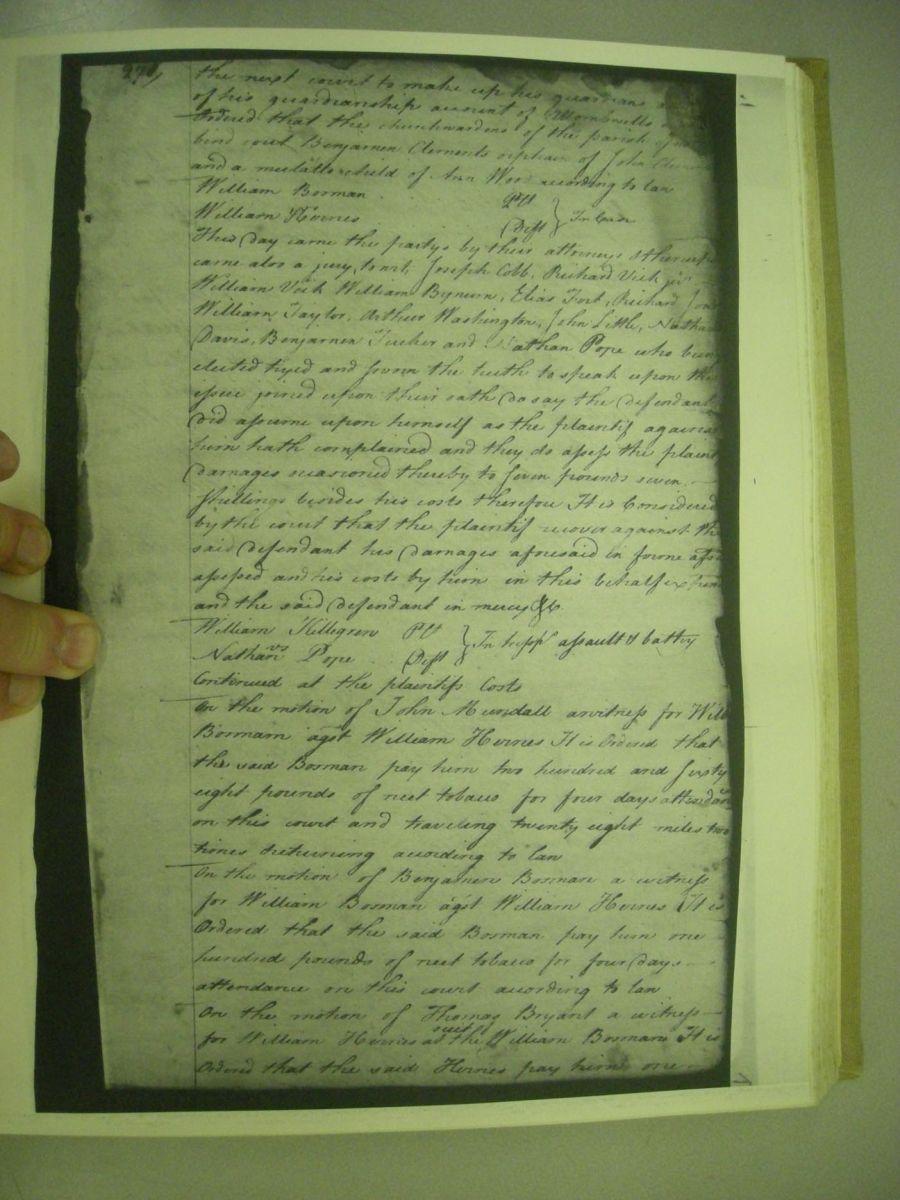 the next court to make up his guardians
of his guardianship account of
Ordered that the churchwardens of the parish of
bind out Benjamen Clements orphan of John
and a mulatto child of Ann according to law
William Bosman Plt
William Hvines Deft } In Case
This day came the partys by their attorneys
came also a jury, towit, Joseph Cobb, Richard Vick jur
William Vick William Bynum, Elias Fort, Richard
William Taylor, Arthur Washington, John Little, Nathan
Davis, Benjamen Tucker and Nathan Pope who being
elected tryed and sworn the truth to speak upon the
issue joined upon their oath do say the defendant
did assume upon himself as the plaintif against
him hath complained and they do assess the plaint
damages occasioned thereby to seven pounds seven
shillings besides his costs therefore It is Considered
by the court that the plaintif recover against the
said defendant his damages aforesaid in forme afsd
assessed and his costs by him in this behalf
and the said defendant in mercy &c.
William Killegren Plt
vs } In tresps assault & battry
Nathan Pope Deft
Continued at the plaintifs Costs
On the motion of John Mundall a witness for Will
Bosmam agst William Hvines It is Ordered that
the said Bosman pay him two hundred and sixty
eight pounds of neet tobaco for four days attendan
on this court and traveling twenty eight miles two
times & returning according to law
On the motion of Benjamen Bosman a witness
for William Bosman agst William Hvines It is
Ordered that the said Bosman pay him one
hundred pounds of neet tobaco for four days
attendance on this court according to law
On the motion of Thomas Bryant a witness
for William Hvines at the suit William Bosmans It is
Ordered that the said Hvines pay him one